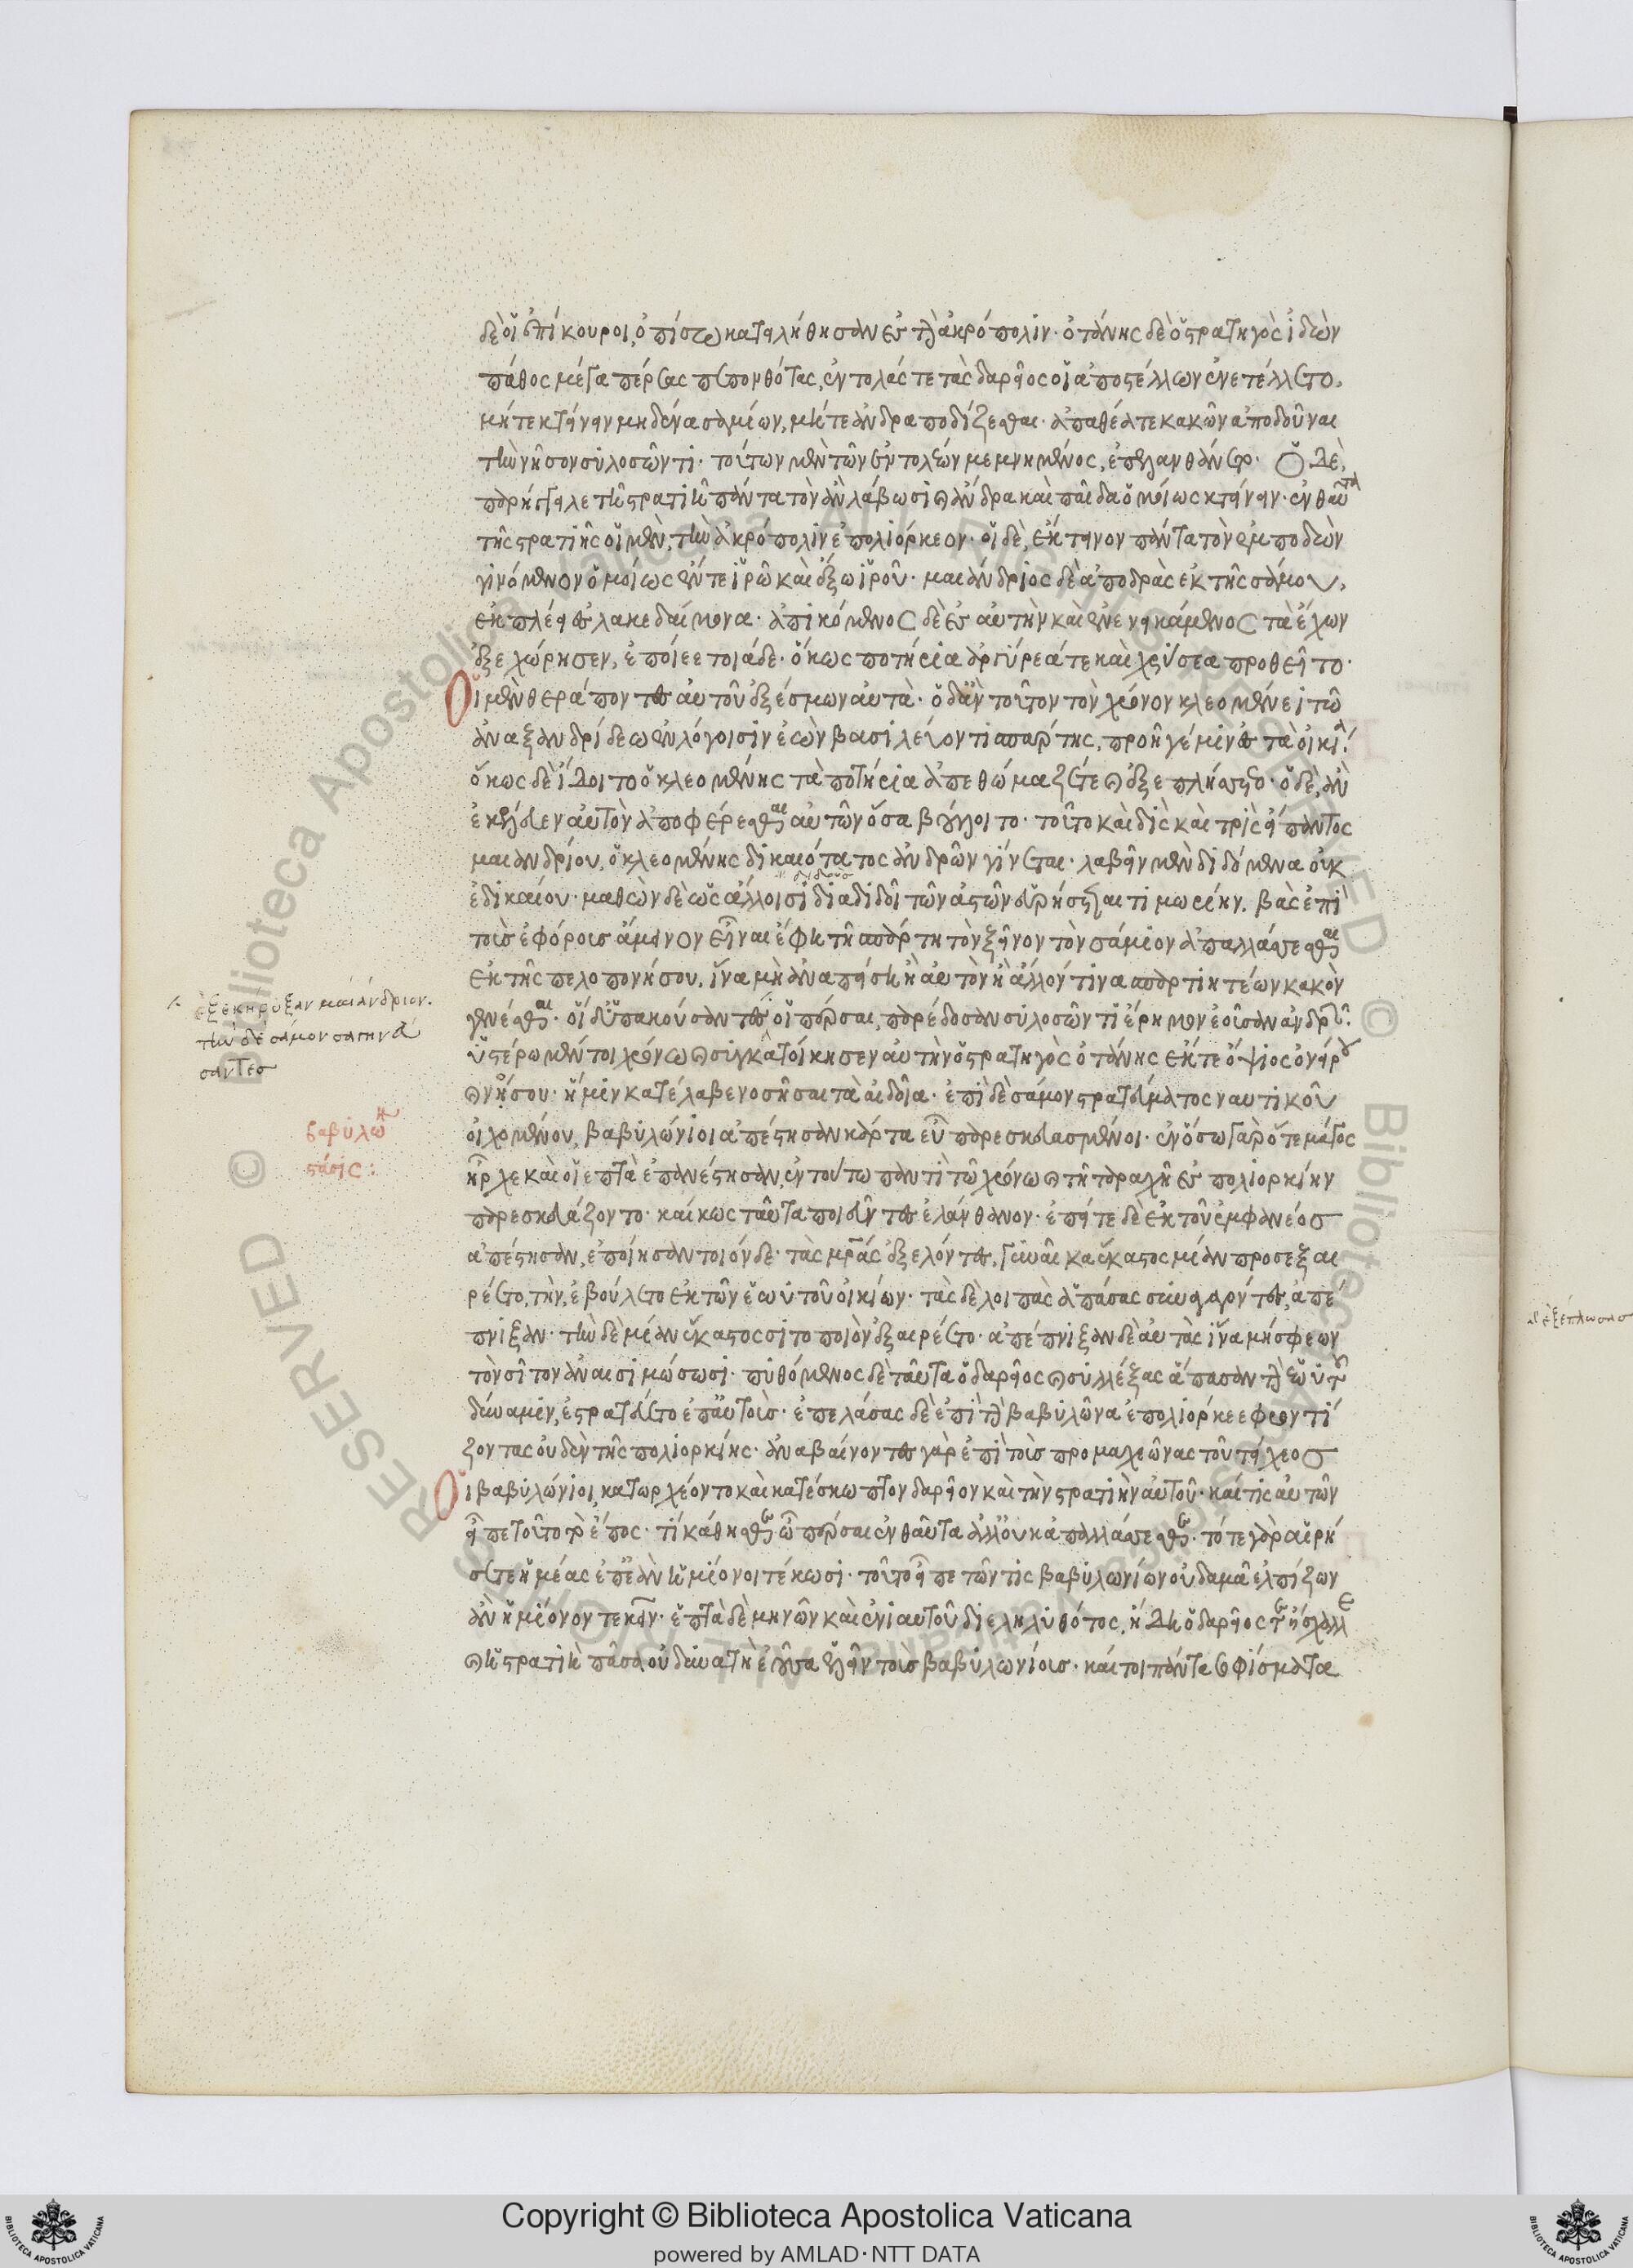 δὲ οἱ ἐπίκουροι, ὀπίσω κατηλήθησαν ἐς τὴν ἀκρόπολιν· ὀτάνης δὲ ὁ στρατηγὸς ἰδὼν
πάθος μέγα πέρσας πεπονθότας, ἐντολάς τε τὰς δαρεῖος οἱ ἀποστέλλων ἐνετέλλετο,
μήτε κτείνειν μηδένα σαμίων, μήτε ἀνδραποδίζεσθαι· ἀπαθέα τε κακῶν ἀποδοῦναι
τὴν νῆσον συλοσῶντι· τούτων μὲν τῶν ἐντολέων μεμνημένος, ἐπελανθάνετο· ὁ δὲ,
παρήγγειλε τῇ στρατιῇ πάντα τὸν ἂν λάβωσι καὶ ἄνδρα καὶ παῖδα ὁμοίως κτείνειν· ἐνθαῦτα
τῆς στρατιῆς οἱ μὲν, τὴν ἀκρόπολιν ἐπολιόρκεον· οἱ δὲ, ἔκτεινον πάντα τὸν ἐμποδὼν
γινόμενον ὁμοίως ἔν τε ἱρῶ καὶ ἔξω ἱροῦ· μαιάνδριος δὲ ἀποδρὰς ἐκ τῆς σάμου,
ἐκπλέει ἐς λακεδαίμονα· ἀπικόμενος δὲ ἐς αὐτὴν καὶ ἀνενεικάμενος τὰ ἔχων
ἐξεχώρησεν, ἐποίεε τοιάδε· ὅκως ποτήρια ἀργύρεά τε καὶ χρύσεα προθεῖτο·
Οἱ μὲν θεράποντες αὐτοῦ ἐξέσμων αὐτὰ· ὁ δ' ἂν τοῦτον τὸν χρόνον κλεομένει τῶ
ἀναξανδρίδεω ἐν λόγοισιν ἐὼν βασιλεύοντι σπάρτης, προῆγέ μιν ἐς τὰ οἰκία·
ὅκως δὲ ἴδοιτο ὁ κλεομένης τὰ ποτήρια ἀπεθώμαζέ τε καὶ ἐξεπλήσσετο· ὁ δὲ, ἂν
ἐκέλευεν αὐτὸν ἀποφέρεσθαι αὐτῶν ὅσα βούλοιτο· τοῦτο καὶ δὶς καὶ τρὶς εἴπαντος
μαιανδρίου, ὁ κλεομένης δικαιότατος ἀνδρῶν γίνεται· λαβεῖν μὲν διδόμενα οὐκ
ἐδικαίου· μαθὼν δὲ ὡς ἄλλοισι διαδιδοῖ τῶν ἀστῶν εὑρήσεται τιμωρίην. βὰς ἐπὶ
τοὺς ἐφόρους ἄμεινον εἶναι ἔφη τῆ σπάρτη τὸν ξεῖνον τὸν σάμιον ἀπαλλάσσεσθαι
ἐκ τῆς πελοπονήσου, ἵνα μὴ ἀναπείση ἢ αὐτὸν ἢ ἄλλόν τινα σπαρτιητέων κακὸν
γενέσθαι· οἱ δ' ὑπακούσαντες
⸍ ἐξεκήρυξαν μαιάνδριον.
τὴν δὲ σάμον σαγηνεύ
σαντες
οἱ πέρσαι, παρέδοσαν συλοσῶντι ἔρημον ἐοῦσαν ἀνδρῶν·
ὑστέρω μέντοι χρόνω καὶ συγκατοίκησεν αὐτὴν ὁ στρατηγὸς ὀτάνης ἔκ τε ὄψιος ὀνείρου
καὶ νούσου· ἥ μιν κατέλαβε νοσῆσαι τὰ αἰδοῖα· ἐπὶ δὲ σάμον στρατεύματος ναυτικοῦ
βαβυλῶν
στάσις:
οἰχομένου, βαβυλώνιοι ἀπέστησαν κάρτα εὖ παρεσκευασμένοι· ἐν ὅσω γὰρ ὅ τε μάγος
ἦρχε καὶ οἱ ἑπτὰ ἐπανέστησαν, ἐν τούτω παντὶ τῶ χρόνω καὶ τῆ ταραχῆ ἐς πολιορκίην
παρεσκευάζοντο· καί κως ταῦτα ποιεῦντες ἐλάνθανον· ἐπείτε δὲ ἐκ τοῦ ἐμφανέος
ἀπέστησαν, ἐποίησαν τοιόνδε· τὰς μρας ἐξελόντες, γυναῖκα ἕκαστος μίαν προσεξαι
ρέετο, τὴν, ἐβούλετο ἐκ τῶν ἑωυτοῦ οἰκίων· τὰς δὲ λοιπὰς ἁπάσας συναγαγόντες, ἀπέ
πνιξαν· τὴν δὲ μίαν ἕκαστος σιτοποιὸν ἐξαιρέετο· ἀπέπνιξαν δὲ αὐτὰς ἵνα μή σφεων
τὸν σῖτον ἀναισιμώσωσι· πυθόμενος δὲ ταῦτα ὁ δαρεῖος καὶ συλλέξας ἅπασαν τὴν ἑωυτοῦ
δύναμιν, ἐστρατεύετο ἐπ' αὐτοὺς· ἐπελάσας δὲ ἐπὶ τὴν βαβυλῶνα ἐπολιόρκεε φροντί
ζοντας οὐδὲν τῆς πολιορκίης· ἀναβαίνοντες γὰρ ἐπὶ τοὺς προμαχεῶνας τοῦ τείχεος
Οἱ βαβυλώνιοι, κατωρχέοντο καὶ κατέσκωπτον δαρεῖον καὶ τὴν στρατιὴν αὐτοῦ· καί τις αὐτῶν
εἶπε τοῦτο τὸ ἔπος· τί κάθησθε ὦ πέρσαι ἐνθαῦτα ἀλλ' οὐκ ἀπαλλάσσεσθε· τότε γὰρ αἱρή
σετε ἡμέας ἐπεὰν ἡμίονοι τέκωσι· τοῦτο εἶπε τῶν τις βαβυλωνίων οὐδαμᾶ ἐλπίζων
ἂν ἡμίονον τεκεῖν· ἑπτὰ δὲ μηνῶν καὶ ἐνιαυτοῦ διεληλυθότος, ἤδη ὁ δαρεῖός τε ἤσχαλλε
καὶ ἡ στρατιὴ πᾶσα οὐ δυνατὴ ἐοῦσα ἑλεῖν τοὺς βαβυλωνίους· καίτοι πάντα σοφίσματα
Copyright © Biblioteca Apostolica Vaticana
powered by AMLAD·NTT DATA